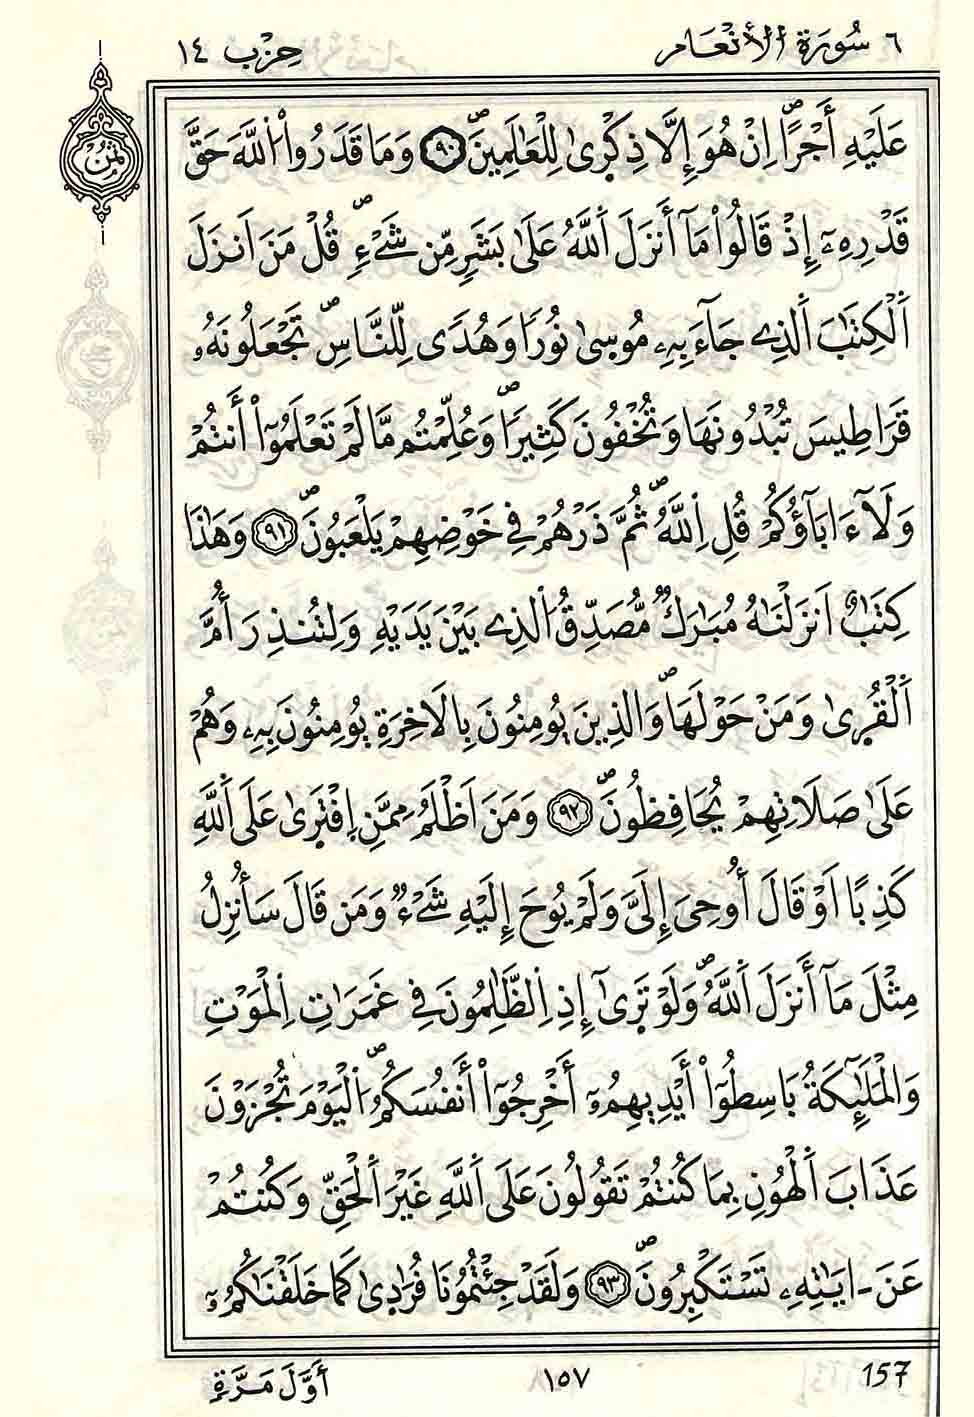 ٦ سُورَةُ الأَنْعَامِ
حِزْب ١٤
ثُمُن
عَلَيْهِ أَجْرًا اِنْ هُوَ إِلَّا ذِكْرَىٰ لِلْعَٰلَمِينَ ٩٠ وَمَا قَدَرُواْ اُللَّهَ حَقَّ
قَدْرِهِۦٓ إِذْ قَالُواْ مَآ أَنزَلَ اَللَّهُ عَلَىٰ بَشَرٍ مِّن شَےْءٍ قُلْ مَنَ اَنزَلَ
اَلْكِتَٰبَ اَلذِے جَآءَ بِهِۦ مُوسىٰ نُورًا وَهُدًى لِّلنَّاسِ تَجْعَلُونَهُۥ
قَرَاطِيسَ تُبْدُونَهَا وَتُخْفُونَ كَثِيرًا وَعُلِّمْتُم مَّا لَمْ تَعْلَمُوٓاْ أَنتُمْ
وَلَآ ءَابَآؤُكُمْ قُلِ اِللَّهُ ثُمَّ ذَرْهُمْ فِے خَوْضِهِمْ يَلْعَبُونَ ٩١ وَهَٰذَا
كِتَٰبٌ اَنزَلْنَٰهُ مُبَٰرَكٌ مُّصَدِّقُ اُلذِے بَيْنَ يَدَيْهِ وَلِتُنذِرَ أُمَّ
اَلْقُرىٰ وَمَنْ حَوْلَهَا وَالذِينَ يُومِنُونَ بِالَاخِرَةِ يُومِنُونَ بِهِۦ وَهُمْ
عَلَىٰ صَلَاتِهِمْ يُحَافِظُونَ ٩٢ وَمَنَ اَظْلَمُ مِمَّنِ اِفْتَرىٰ عَلَى اَللَّهِ
كَذِبًا اَوْ قَالَ أُوحِىَ إِلَىَّ وَلَمْ يُوحَ إِلَيْهِ شَےْءٌ وَمَن قَالَ سَأُنزِلُ
مِثْلَ مَآ أَنزَلَ اَللَّهُ وَلَوْ تَرىٰٓ إِذِ اِلظَّٰلِمُونَ فِے غَمَرَاتِ اِلْمَوْتِ
وَالْمَلَٰٓئِكَةُ بَاسِطُوٓاْ أَيْدِيهِمُۥٓ أَخْرِجُوٓاْ أَنفُسَكُمُ اُلْيَوْمَ تُجْزَوْنَ
عَذَابَ اَلْهُونِ بِمَا كُنتُمْ تَقُولُونَ عَلَى اَللَّهِ غَيْرَ اَلْحَقِّ وَكُنتُمْ
عَنَ ـ ايَٰتِهِۦ تَسْتَكْبِرُونَ ٩٣ وَلَقَدْ جِئْتُمُونَا فُرَٰدىٰ كَمَا خَلَقْنَٰكُمُۥٓ
157
١٥٧
أَوَّلَ مَرَّةٍ